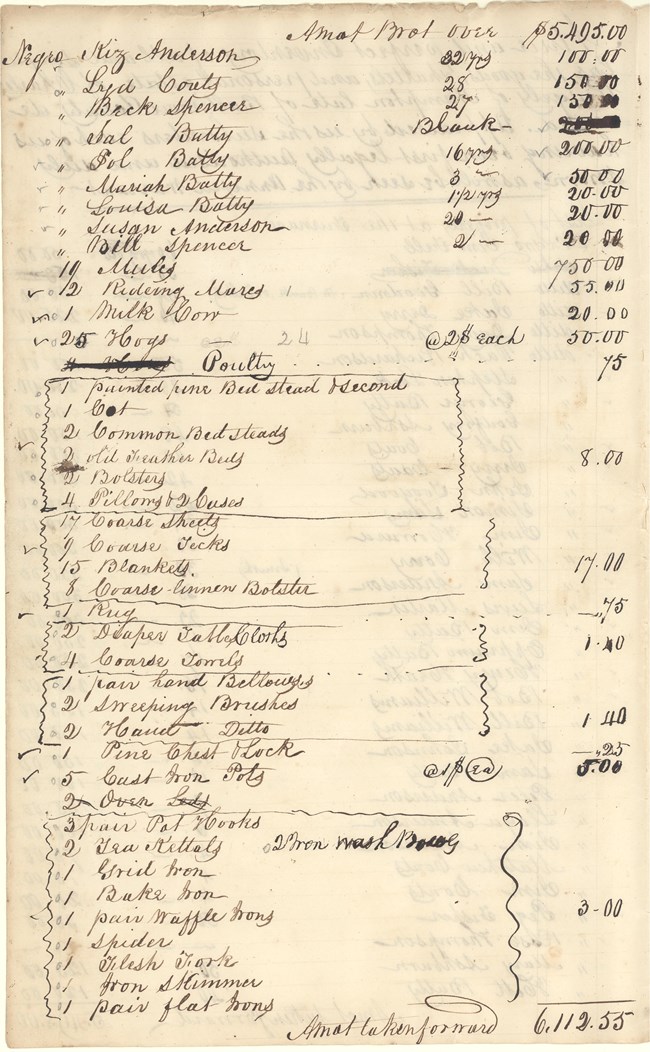 Amot Brot over $5.495.00
Negro Kiz Anderson 32 yrs 100.00
" Lyd Couts 28 150 00
" Beck Spencer 27 150
" Sal Batty Blank
" Pol Batty 16 yrs 200.00
" Mariah Batty 3 — 50.00
" Louisa Batty 1 1/2 yrs 20.00
" Susan Anderson 20 — 20.00
" Bill Spencer 2 — 20 00
19 Mules 750.00
12 Rideing Mares 1 55.00
1 Milk Cow 20.00
25 Hogs — 24 @ 2$ each 50.00
Poultry 75
1 painted pine Bed stead & second
1 Cot
2 Common Bed steads
2 old Feather Beds 8.00
2 Bolsters
4 Pillows & 2 Cases
17 Coarse Sheets
9 Coarse Tecks
15 Blankets 17.00
8 Coarse linnen Bolster
1 Rug 75
2 Diaper Table Cloths
4 Coarse Towels 1.40
1 pair hand Bellowses
2 Sweeping Brushes
2 Hand Ditto 1.40
1 Pine Chest & Lock 25
5 Cast Iron Pots @ 1$ ea 5.00
2 Over Leds
3 pair Pot Hooks
2 Tea Kettals 2 Iron wash Bowls
1 Grid Iron
1 Bake Iron
1 pair Waffle Irons 3.00
1 Spider
1 Flesh Fork
1 Iron Skimmer
1 pair flat Irons
Amot taken forward 6,112.55